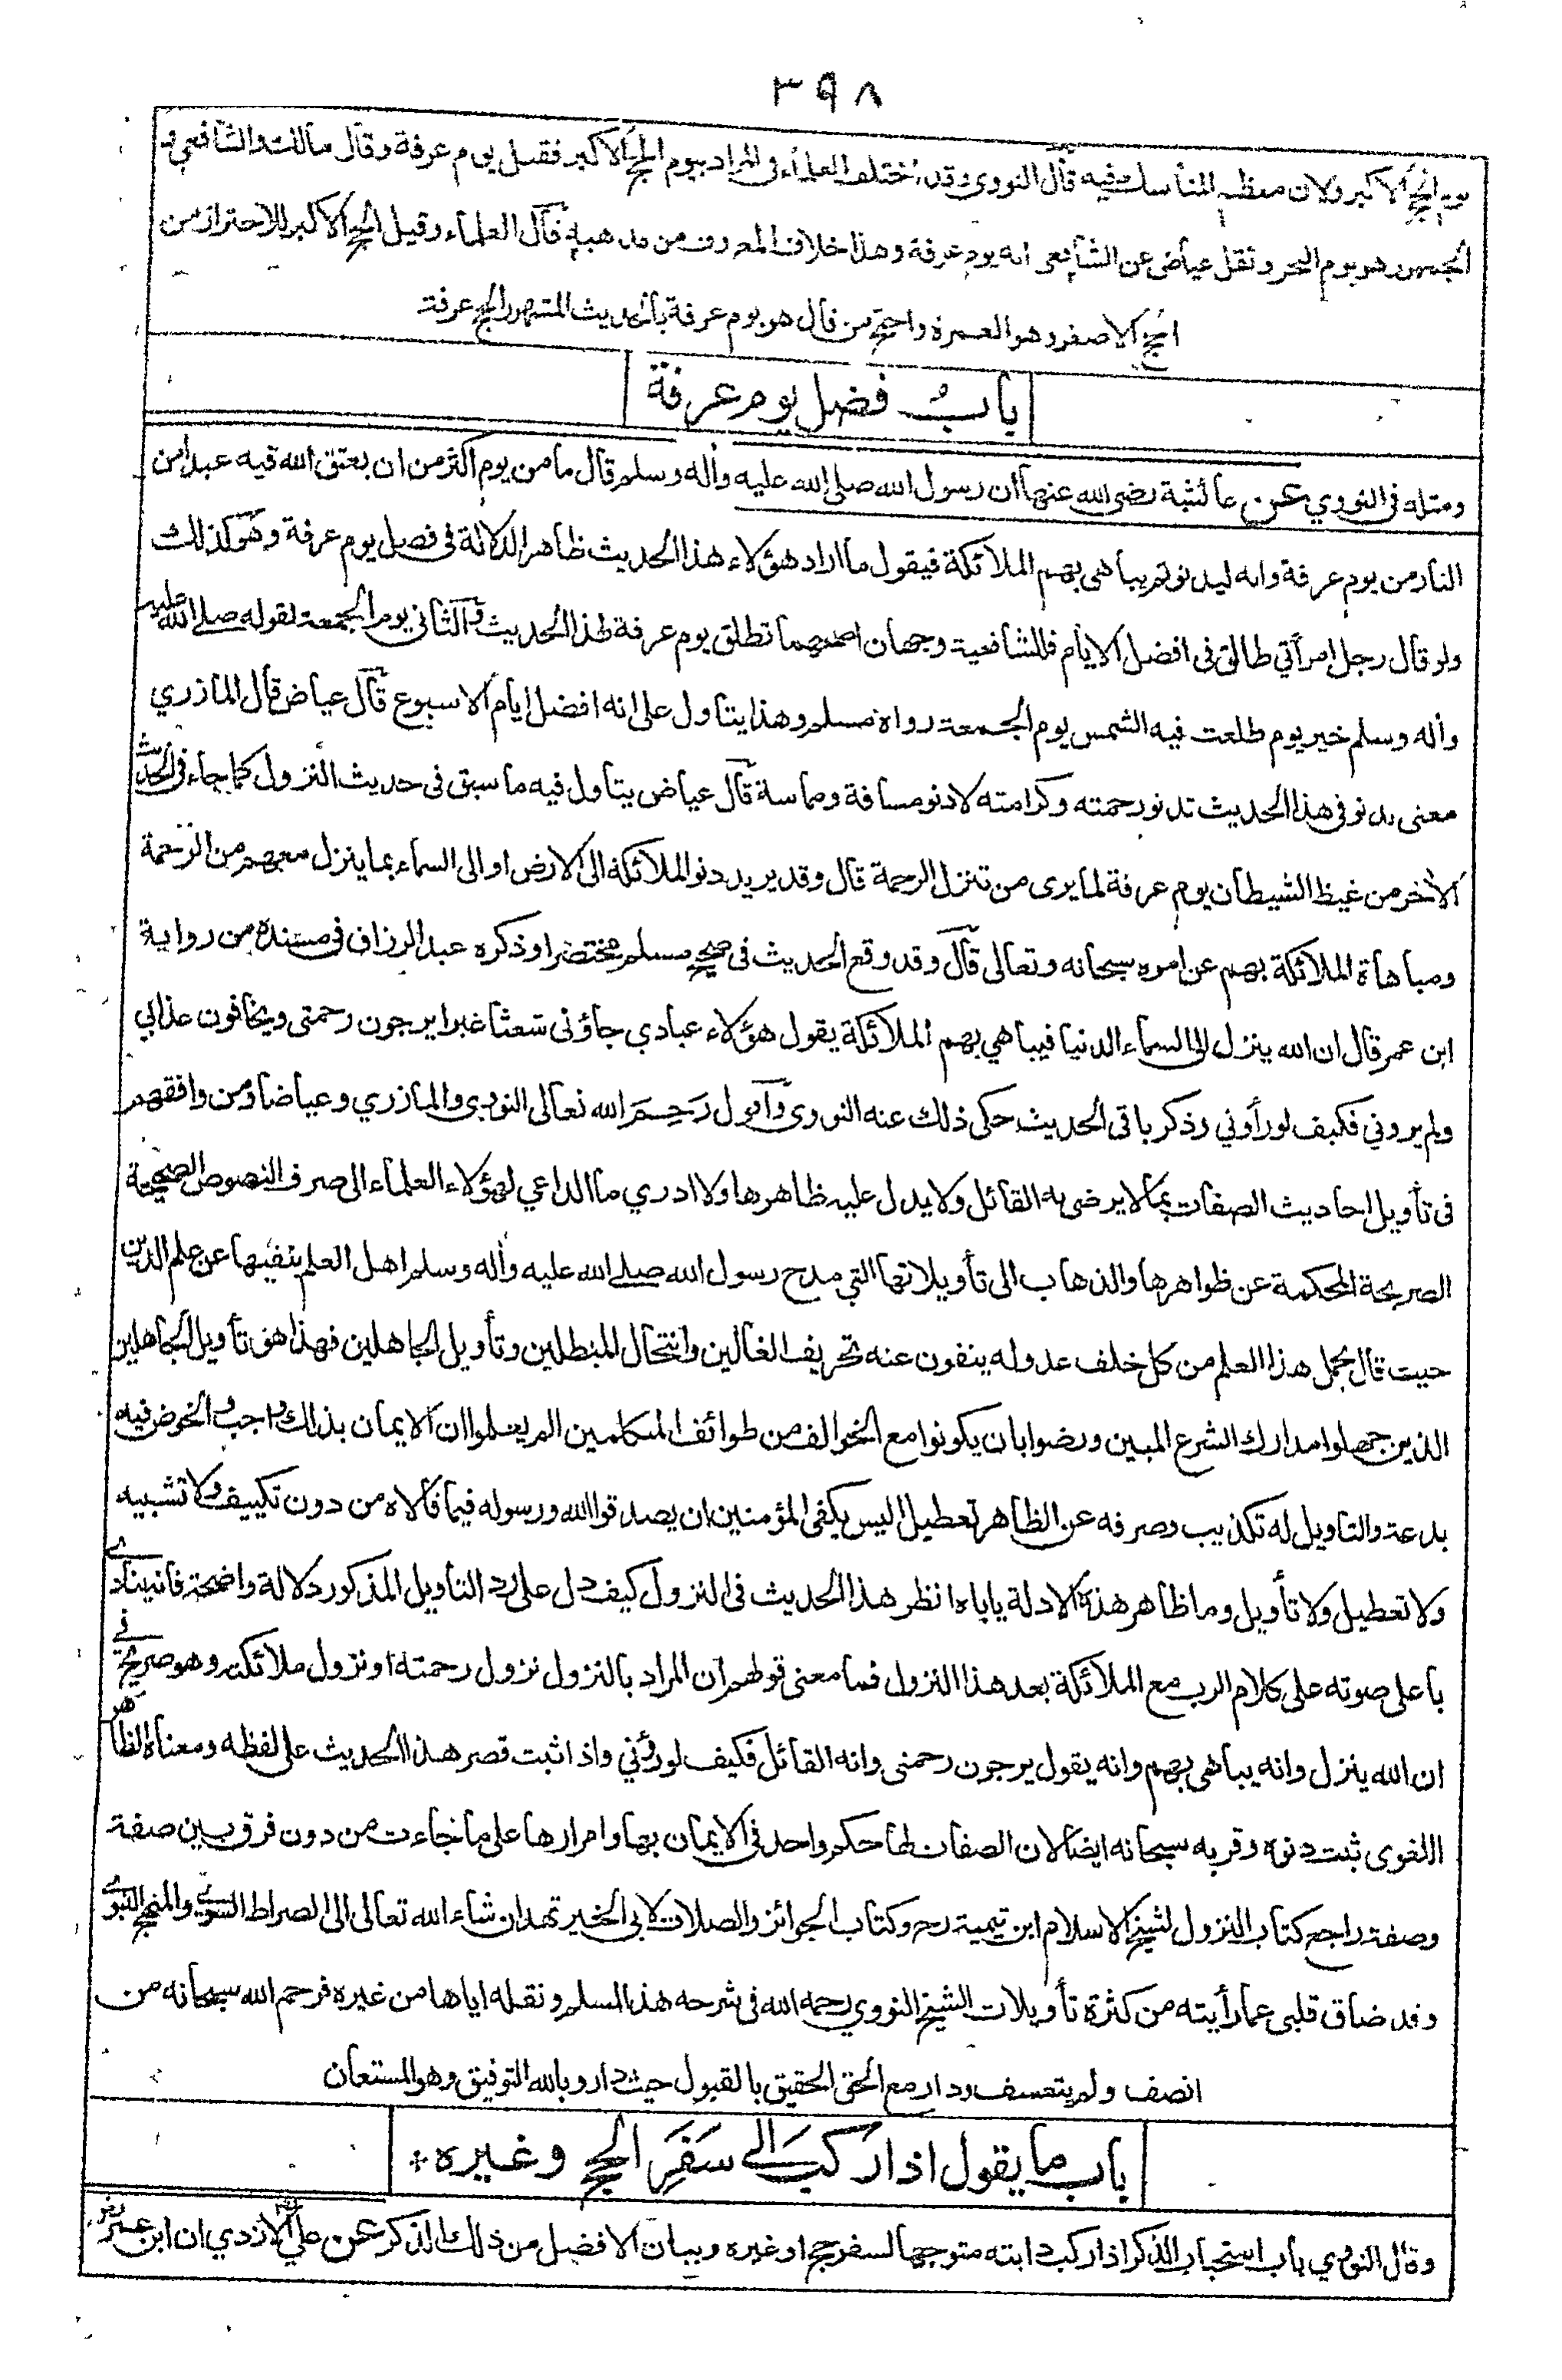 ٣٩٨
يوم الحج الاكبر ولان معظم المناسك فيه قال النووي وقد اختلف العلماء في المراد بيوم الحج الاكبر فقيل يوم عرفة وقال مالك والشافعي و
الجمهور هو يوم النحر ونقل عياض عن الشافعي انه يوم عرفة وهذا خلاف المعروف من مذهبه قال العلماء وقيل الحج الاكبر للاحتراز من
الحج الاصغر وهو العمرة واحتج من قال هو يوم عرفة بالحديث المشهور الحج عرفة
باب فضل يوم عرفة
ومثله في النووي عن عائشة رضي الله عنها ان رسول الله صلى الله عليه وأله وسلم قال ما من يوم اكثر من ان يعتق الله فيه عبدا من
النار من يوم عرفة وانه ليدنو ثم يباهى بهم الملائكة فيقول ما اراد هؤلاء هذا الحديث ظاهر الدلالة فى فضل يوم عرفة وهو كذلك
ولو قال رجل امرأتي طالق فى افضل الايام فللشافعية وجهان اصحهما تطلق يوم عرفة لهذا الحديث والثانى يوم الجمعة لقوله صلى الله عليه
وأله وسلم خير يوم طلعت فيه الشمس يوم الجمعة رواه مسلم وهذا يتاول على انه افضل ايام الاسبوع قال عياض قال المازري
معنى يدنو فى هذا الحديث تدنو رحمته وكرامته لا دنو مسافة ومماسة قال عياض يتاول فيه ما سبق فى حديث النزول كما جاء فى الحديث
الأخر من غيظ الشيطان يوم عرفة لما يرى من تنزل الرحمة قال وقد يريد دنو الملائكة الى الارض او الى السماء بما ينزل معهم من الرحمة
ومباهاة الملائكة بهم عن امره سبحانه وتعالى قال وقد وقع الحديث فى صحيح مسلم مختصرا وذكره عبد الرزاق فى مسنده من رواية
ابن عمر قال ان الله ينزل الى السماء الدنيا فيباهي بهم الملائكة يقول هؤلاء عبادي جاؤنى شعثا غبرا يرجون رحمتى ويخافون عذابي
ولم يروني فكيف لو رأوني وذكر باقى الحديث حكى ذلك عنه النووى وأقول رَحِمَ الله تعالى النووى والمازري وعياضا ومن وافقهم
فى تأويل احاديث الصفات بما لا يرضى به القائل ولا يدل عليه ظاهرها ولا ادري ما الداعي لهؤلاء العلماء الى صرف النصوص الصحيحة
الصريحة المحكمة عن ظواهرها والذهاب الى تأويلاتها التي مدح رسول الله صلى الله عليه وأله وسلم اهل العلم بنفيها عن علم الدين
حيث قال يحمل هذا العلم من كل خلف عدوله ينفون عنه تحريف الغالين وانتحال المبطلين وتأويل الجاهلين فهذا هو تأويل الجاهلين
الذين جهلوا مدارك الشرع المبين ورضوا بان يكونوا مع الخوالف من طوائف المتكلمين الم يعلموا ان الايمان بذلك واجب والخوض فيه
بدعة والتاويل له تكذيب وصرفه عن الظاهر تعطيل اليس يكفى المؤمنين ان يصدقوا الله ورسوله فيما قالاه من دون تكييف ولا تشبيه
ولا تعطيل ولا تأويل وما ظاهر هذه الادلة ياباه انظر هذا الحديث فى النزول كيف دل على رد التأويل المذكور دلالة واضحة فانه ينادى
باعلى صوته على كلام الرب مع الملائكة بعد هذا النزول فما معنى قولهم ان المراد بالنزول نزول رحمته او نزول ملائكته وهو صريح فى
ان الله ينزل وانه يباهى بهم وانه يقول يرجون رحمتى وانه القائل فكيف لو رأوني واذا ثبت قصر هذا الحديث على لفظه ومعناه الظاهر
اللغوى ثبت دنوه وقربه سبحانه ايضا لان الصفات لها حكم واحد فى الايمان بها وامرارها على ما جاءت من دون فرق بين صفة
وصفة راجع كتاب النزول لشيخ الاسلام ابن تيمية رح وكتاب الجوائز والصلات لابى الخير تهد ان شاء الله تعالى الى الصراط السوى والمنهج النبوى
وقد ضاق قلبى عما رأيته من كثرة تأويلات الشيخ النووي رحمه الله فى شرحه هذا المسلم ونقله اياها من غيره فرحم الله سبحانه من
انصف ولم يتعسف ودار مع الحق الحقيق بالقبول حيث دار وبالله التوفيق وهو المستعان
باب ما يقول اذا ركب الى سَفَرِ الحج وغيره *
وقال النووي باب استحباب الذكر اذا ركب دابته متوجها لسفر حج او غيره وبيان الافضل من ذلك الذكر عن علي الازدي ان ابن عمر